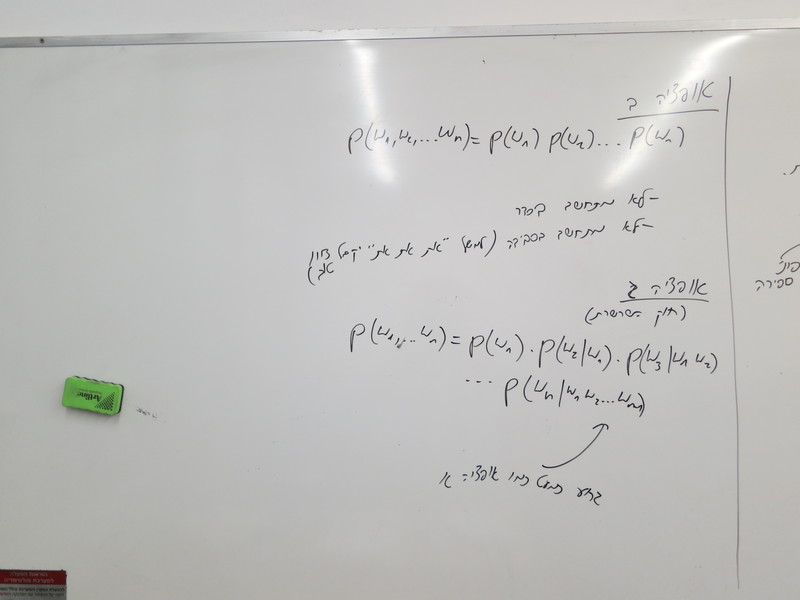 אופציה ב
P(w1,w2,...wn)=P(w1) P(w2)... P(wn)
-לא מתחשב בסדר
-לא מתחשב בסביבה (למשל "את את את" יקבל ציון
טוב)
אופציה ג
(חוק השרשרת)
P(w1,...wn)=P(w1)·P(w2|w1)·P(w3|w1 w2)
... P(wn|w1 w2...wn-1)
גרוע כמעט כמו אופציה א
ספירה
Artline